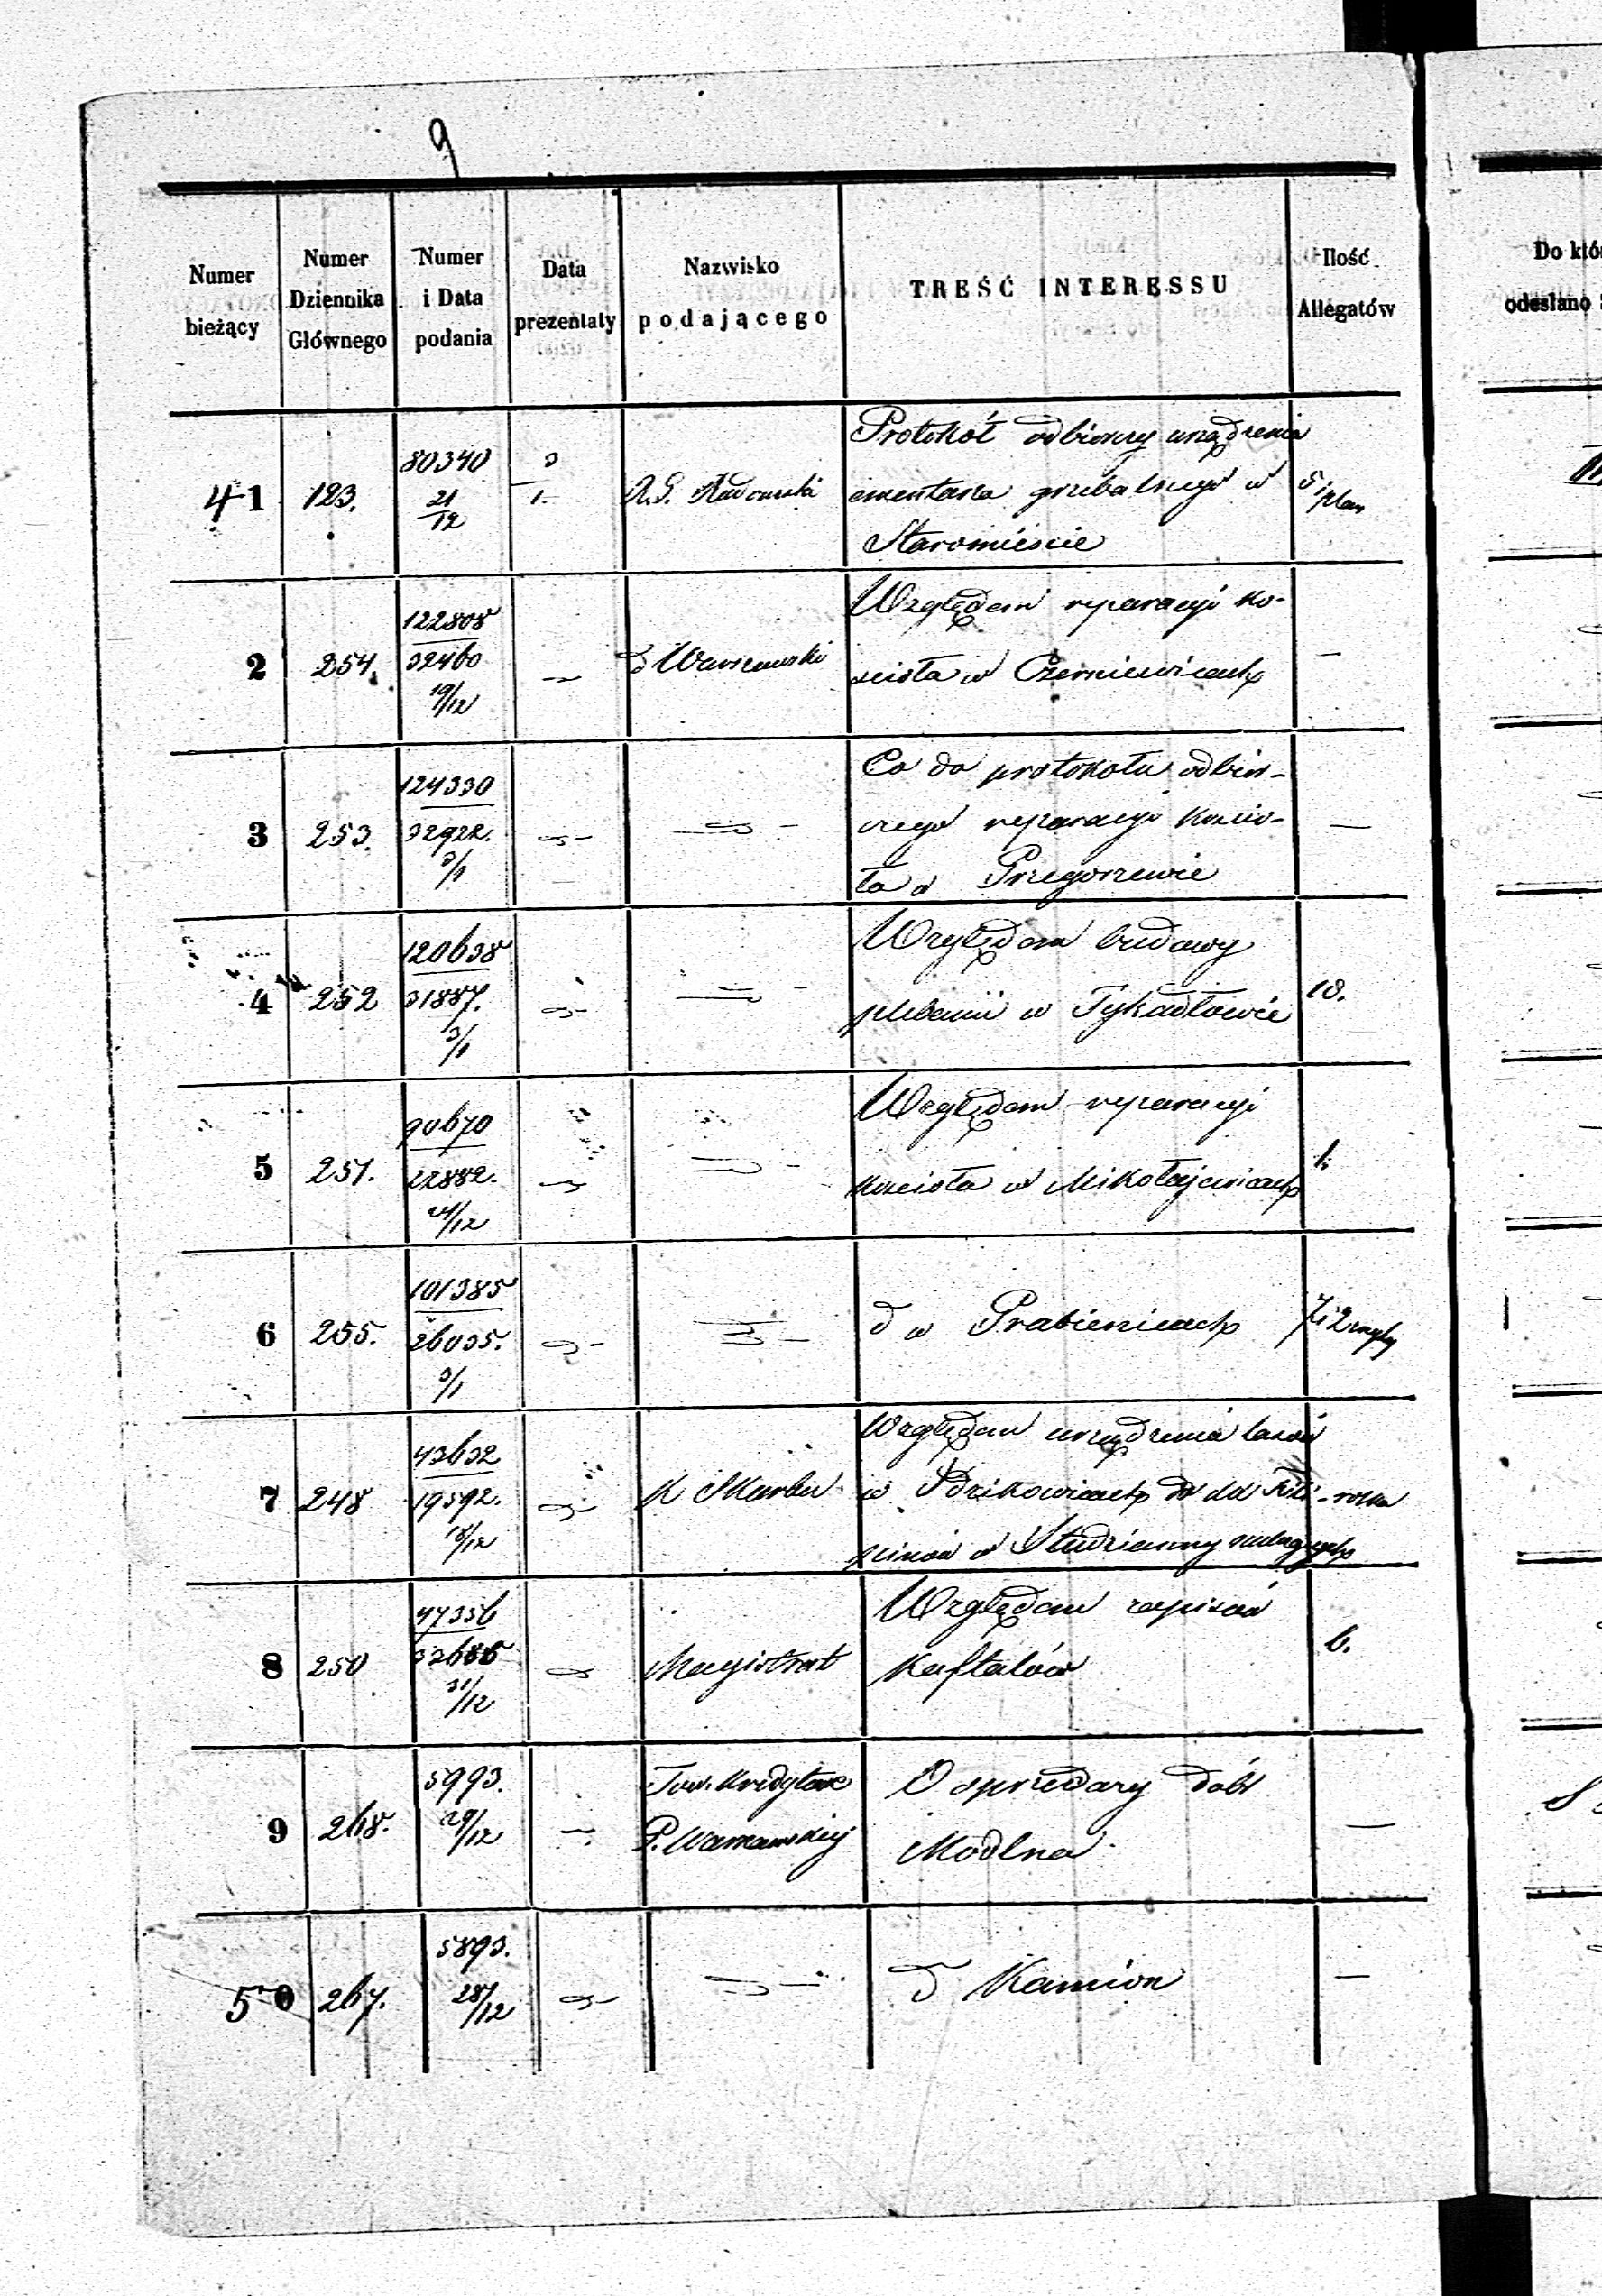 9
Numer bieżący
Numer Dziennika Głównego
Numer i Data podania
Data prezentaty
Nazwisko podającego
TREŚĆ INTERESSU
Ilość Allegatów
Do któ
odesłano
41 123. 80340 21/12 3/1. R. G. Radomski
Protokół odbiorczy urządzenia
cmentarza grzebalnego w
Staromieście
5 i plan
2 254. 122808 32460 19/12 — d Warszawski
Względem reparacyi ko-
ścioła w Czerniewicach
—
3 253. 124330 32922. 3/1 — —
Co do protokołu odbior-
czego reparacyi kościo-
ła w Przegorzewie
—
4 252 120638 31887. 3/1 — —
Względem budowy
plebanii w Tykadłowie
10.
5 251. 90670 22882. 24/12 — —
Względem reparacyi
kościoła w Mikołajewicach
1.
6 255. 101385 26035. 3/1 — —
d w Drabienicach
7 i 2 mapy
7 248 43632 19592. 18/12 — K Skarbu
Względem urządzenia lasów
w Idzikowicach do dd Fili-
pinów w Studziannы należących
8 250 47356 31/12 — Magistrat
Względem zapisów
Kaftalów
6.
9 268. 5993. 29/12 — Tow. Kredytowe
P. Warszawskiej
O sprzedaży dóbr
Modlna
—
50 267. 5893. 28/12 — —
d Kamion
—